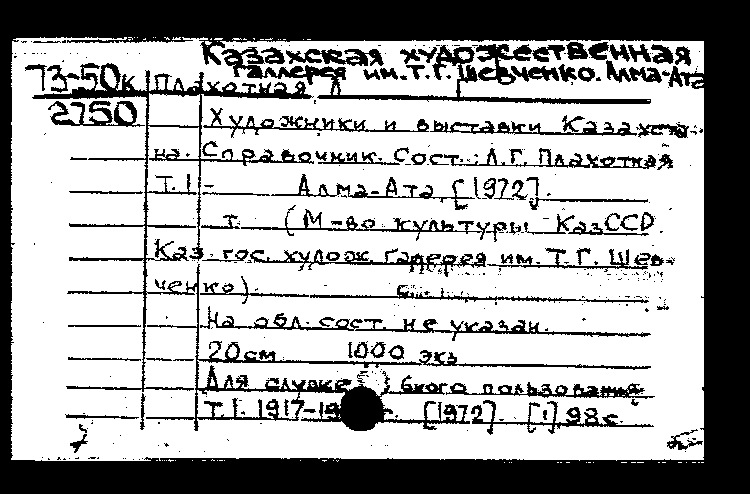 Казахская художественная
галлерея им. Т. Г. Шевченко. Алма-Ата
73-50к Плахотная Л
2750 Художники и выставки Казахста-
на. Справочник. Сост.: Л. Г. Плахотная
Т. 1 - Алма-Ата, [1972].
т. (М-во культуры КазССР.
Каз. гос. худож. галерея им. Т. Г. Шев-
ченко).
На обл. сост. не указан.
20см 1000 экз
Для служебного пользования
Т. 1. 1917- г. [1972]. [1] 98 с